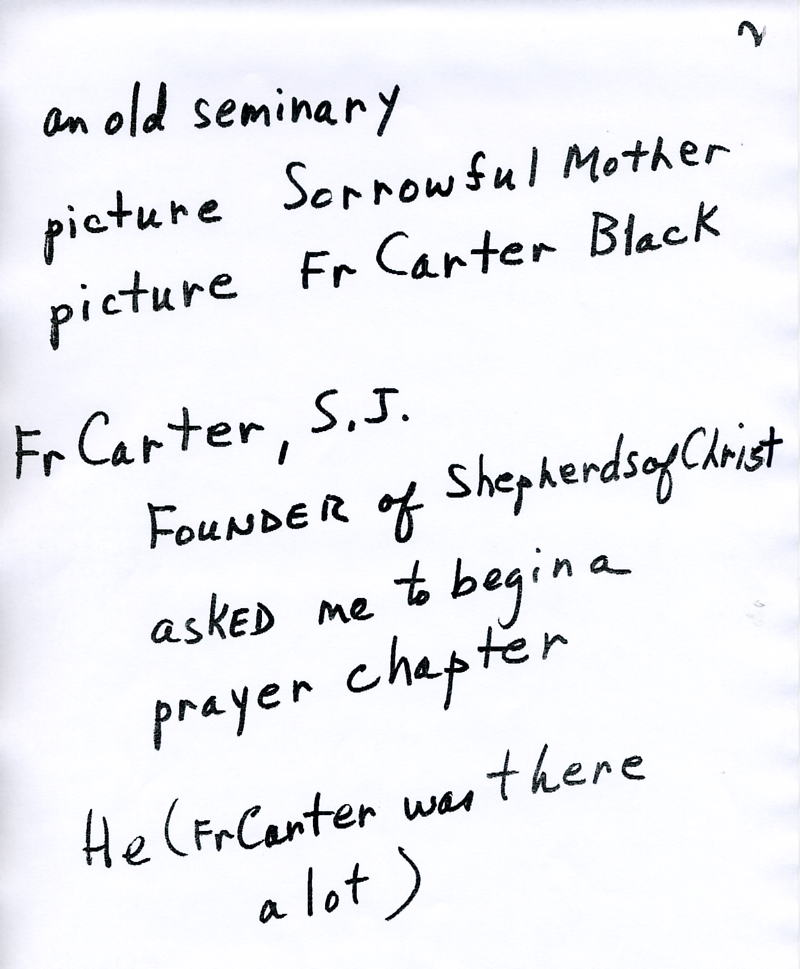 2
an old seminary
picture Sorrowful Mother
picture Fr Carter Black
Fr Carter, S.J.
FOUNDER of Shepherds of Christ
asKED me to begin a
prayer chapter
He (Fr Carter was there
a lot)